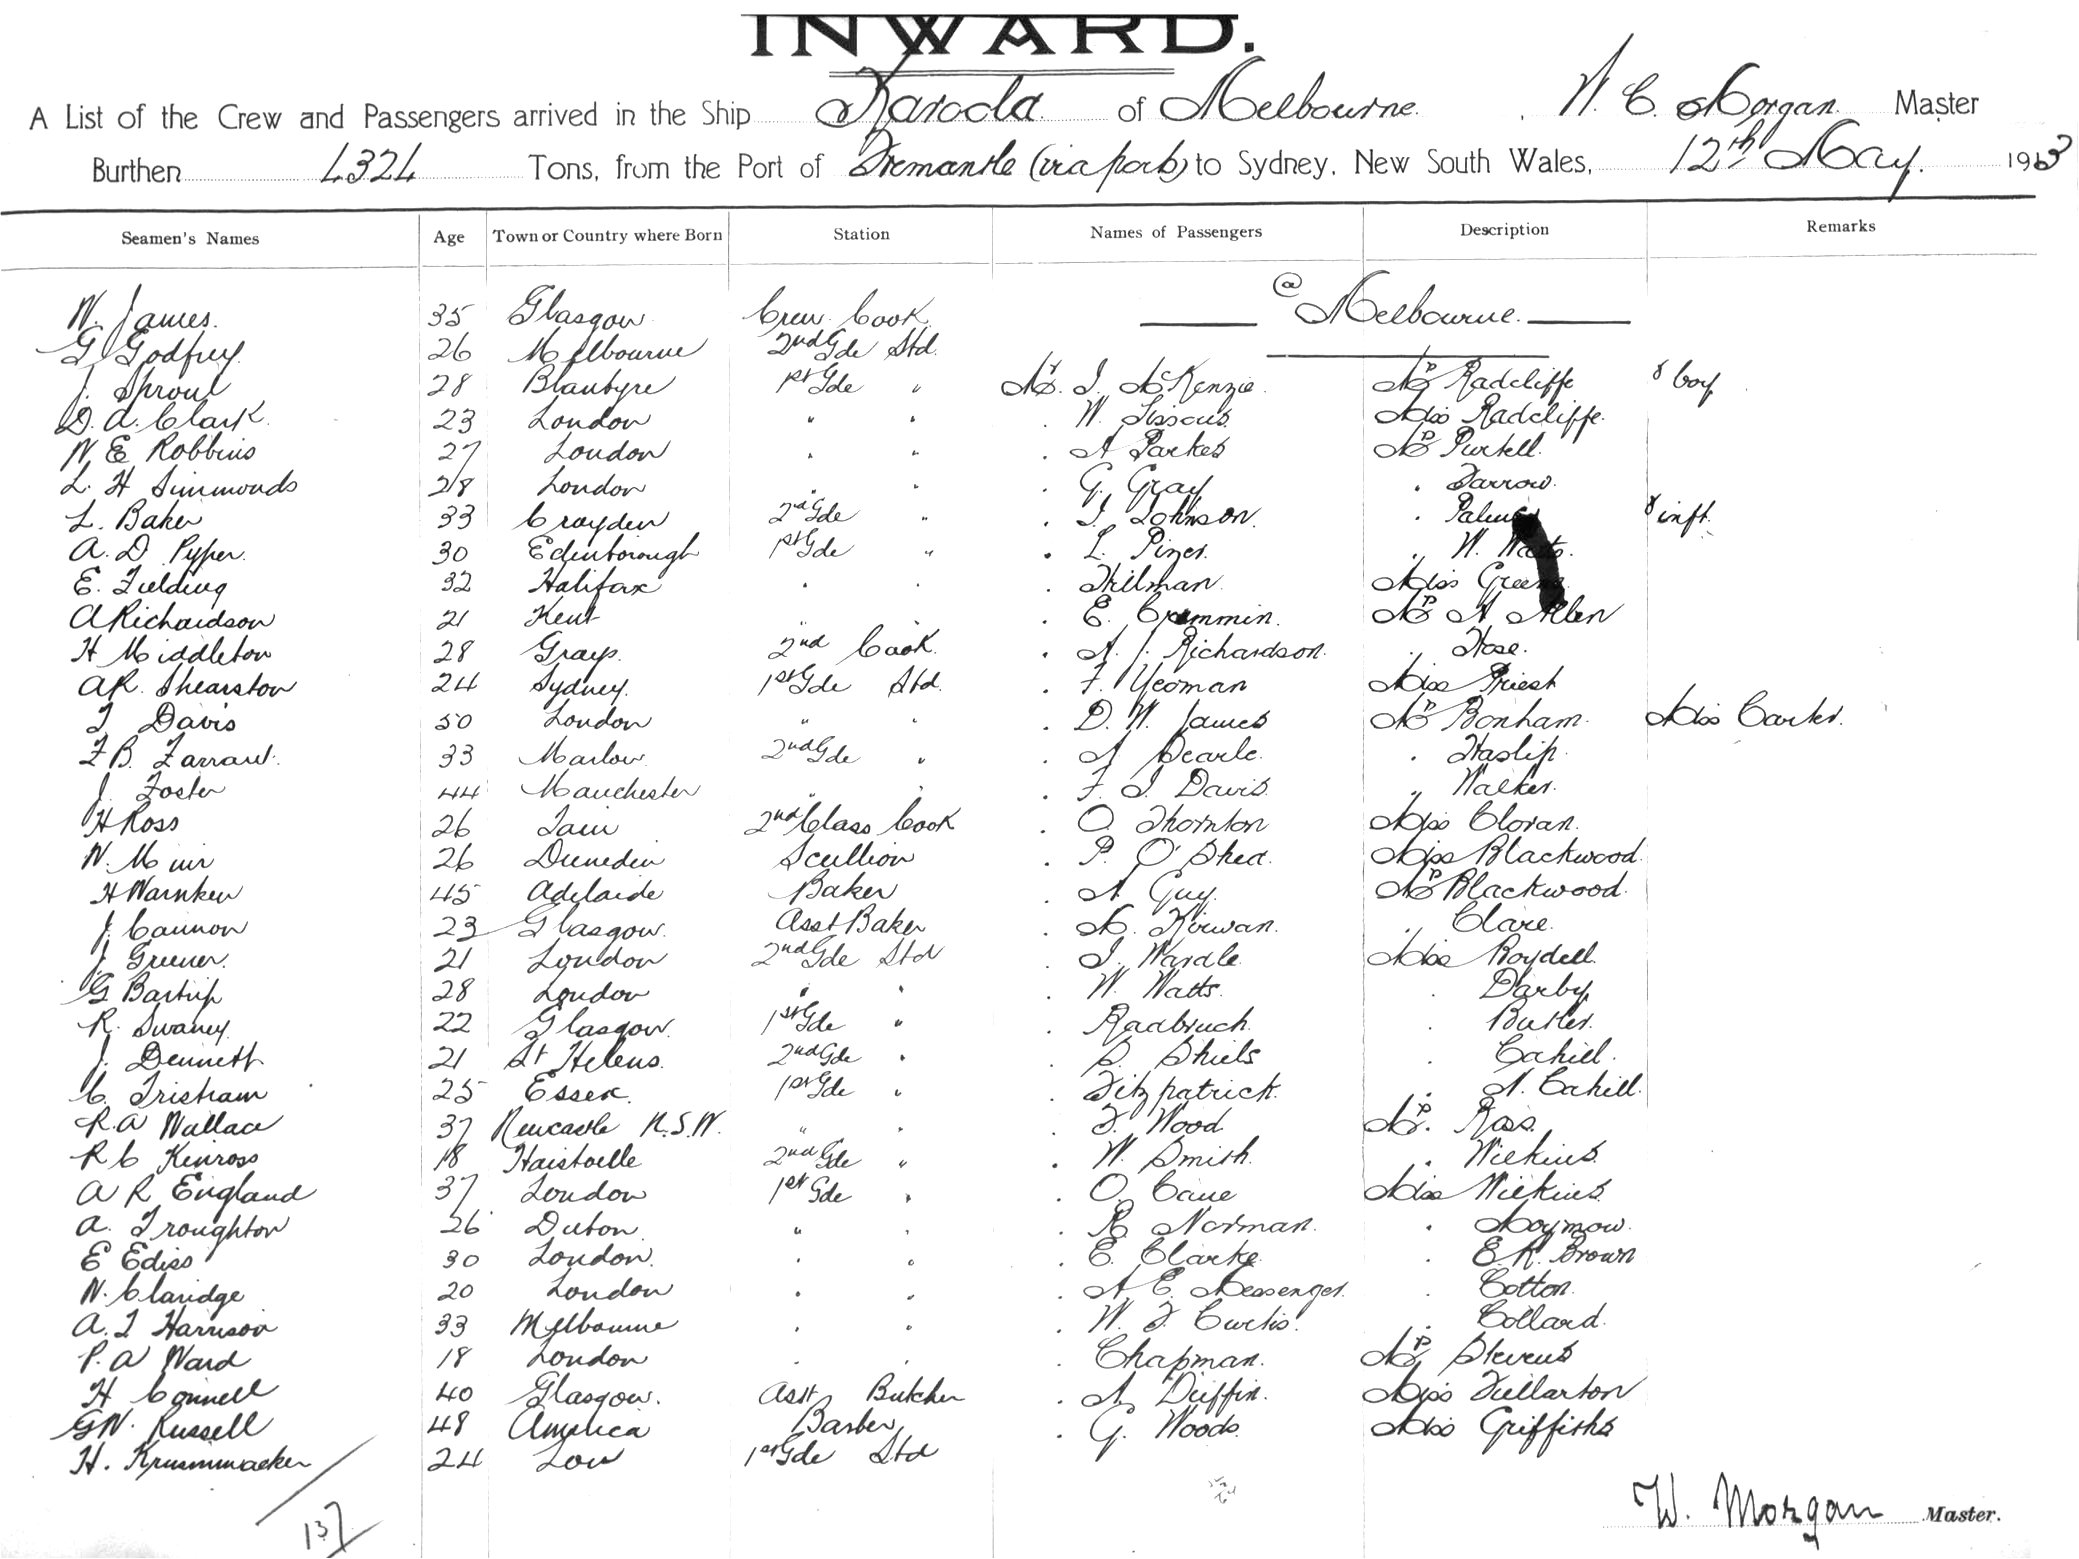 INWARD.
A List of the Crew and Passengers arrived in the Ship Karoola of Melbourne. W. C. Morgan Master
Burthen Tons, from the Port of Fremantle (via ports) to Sydney, New South Wales, 12th May. 1913
Seamen's Names Age Town or Country where Born Station Names of Passengers Description Remarks
@
W. James. 35 Glasgow Crew Cook Melbourne.
G Godfrey. 26 Melbourne 2nd Gde Std.
J. Sproul 28 Blantyre 1st Gde " Mr. J. McKenzie. Mrs Radcliffe & boy
D. A. Clark. 23 London " " . W. Miss Radcliffe.
W. E Robbins 27 London . " . A Parkes Mrs Purtell.
L. H Simmonds 28 London " " . G. Gray . Farrow.
L. Baker 33 Croyden 2nd Gde " . J. Johnson. . Palmer & inft.
A. D Pyper. 30 Edinborough 1st Gde " . L. Pizer. . W. Watts.
E. Fielding 32 Halifax . . . Hilman. Miss Greene
A Richardson 21 Kent " . . E. Crammin. Mrs A Allen
H Middleton 28 Grays. 2nd Cook. . A. J. Richardson. . Hose.
A R. Shearston 24 Sydney. 1st Gde Std. . F. Yeoman Miss Priest
T Davis 50 London " . . D. W. James Mrs Bonham. Miss Carter.
F B. Farrant. 33 Marlow. 2nd Gde " . A Searle. . Haslip.
J. Foster 44 Manchester " . . F. J. Davis. " Walker.
H Ross 26 Tain 2nd Class Cook . O. Thornton Miss Cloran.
W. Muir 26 Dunedin Scullion . P. O'Shea. Miss Blackwood.
H Warnken 45 Adelaide Baker . A Guy. Mrs Blackwood.
J. Cannon 23 Glasgow. Asst Baker . M. Kirwan. . Clare.
J Greener. 21 London 2nd Gde Std . J. Wardle. Miss Boydell.
G Bartrip 28 London " " . W. Watts. . Darby
R. Swaney. 22 Glasgow. 1st Gde " . Radbruch. . Butler.
J. Dennett 21 St Helens. 2nd Gde " . S. Shiels . Cahill.
C. Trisham 25 Essex. 1st Gde " . Fitzpatrick. . A. Cahill.
R. A Wallace 37 Newcastle N.S.W. " . . F. Wood. Mrs. Ross.
R C Kinross 18 2nd Gde " . W. Smith. . Wilkins.
A R England 37 London 1st Gde " . O. Cane Miss Wilkins.
A. Troughton 26 " . . R Norman. .
E Ediss 30 London. . " . E. Clarke. . E. R. Brown
W. Claridge 20 London . " . A E. Messenger. . Cotton.
A. J Harrison 33 Melbourne . " . W. J. Curtis. . Collard.
P. A Ward 18 London . . . Chapman. Mrs Stevens
H Connell 40 Glasgow. Asst Butcher . A. Duffin. Miss Fullarton
G W. Russell 48 America Barber . G. Woods. Miss Griffiths
H. Krummacker 24 Lon 1st Gde Std
137
W. Morgan Master.